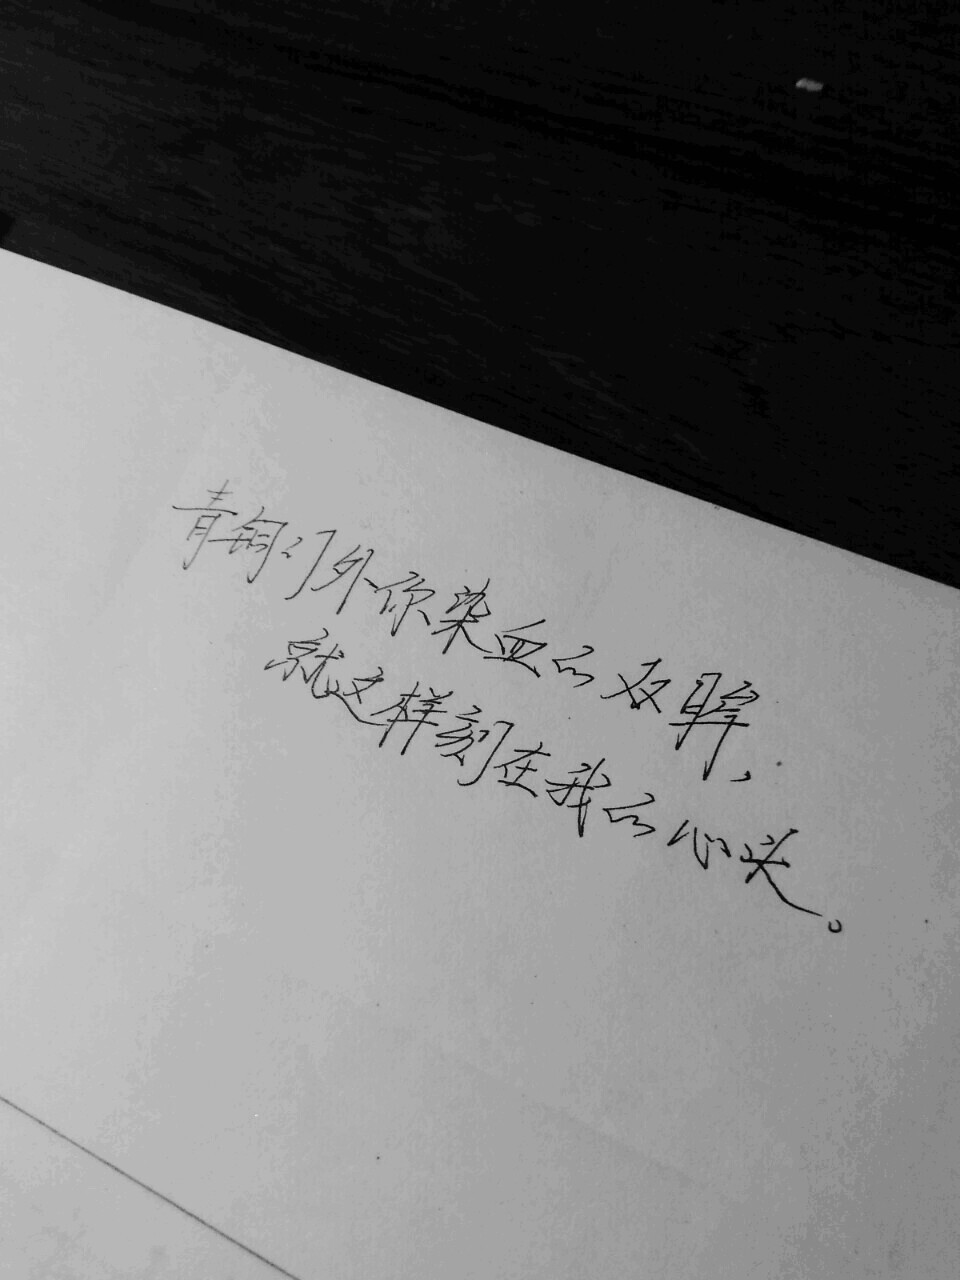 青铜门外你染血的双眸,
就这样刻在我的心头。